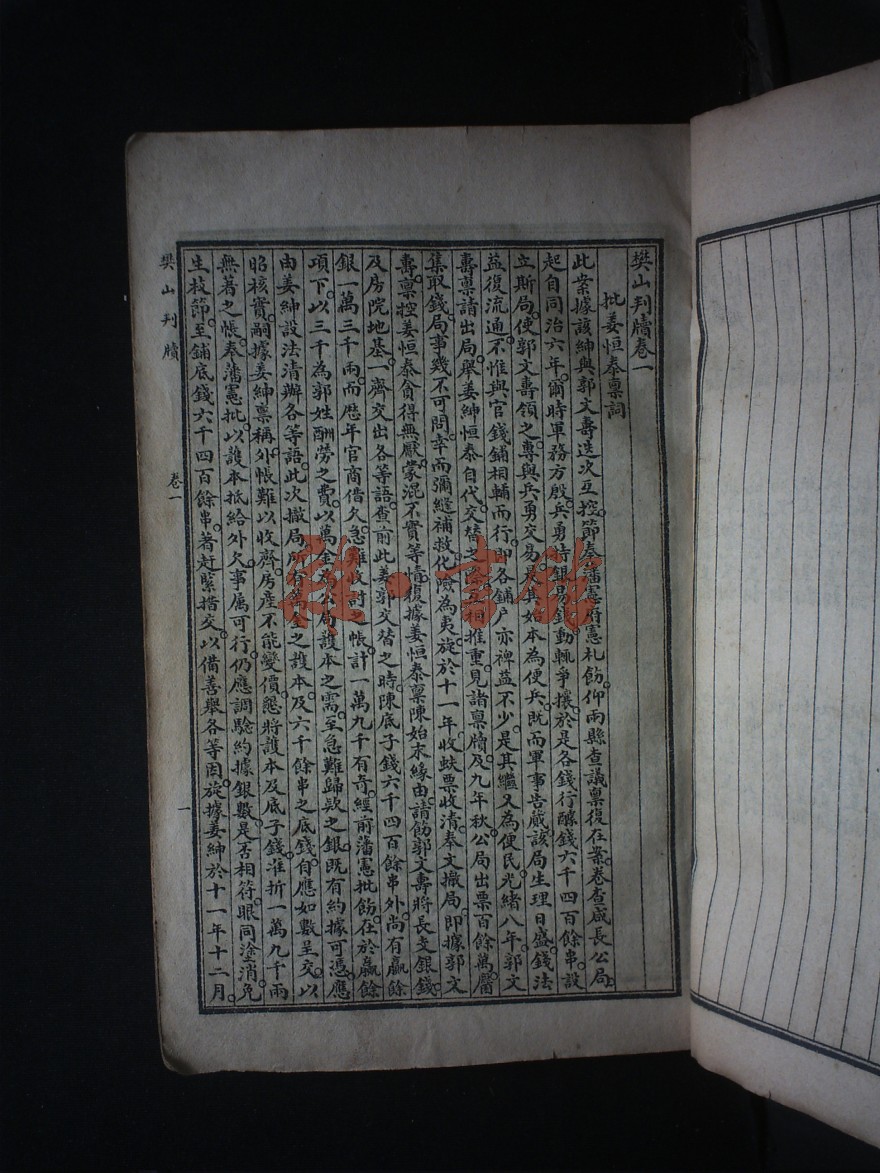 樊山判牘卷一
批姜恒泰稟詞
此案據該紳與郭文壽迭次互控節奉藩憲府憲札飭仰兩縣查議稟復在案卷查咸長公局
起自同治六年爾時軍務方殷兵勇持銀易錢動輒爭攘於是各錢行醵錢六千四百餘串設
立斯局使郭文壽領之專與兵勇交易是其始本為便兵既而軍事告蕆該局生理日盛錢法
益復流通不惟與官錢鋪相輔而行即各鋪户亦裨益不少是其繼又為便民光緒八年郭文
壽稟請出局舉姜紳恒泰自代交替之推重見諸稟牘及九年秋公局出票百餘萬
集取錢局事幾不可問幸而彌縫補救化險為夷旋於十一年收蚨票收清奉文撤局即據郭文
壽稟控姜恒泰貪得無厭蒙混不實等情復據姜恒泰稟陳始末緣由請飭郭文壽將長支銀錢
及房院地基一齊交出各等語查前此姜郭交替之時陳底子錢六千四百餘串外尚有贏餘
銀一萬三千兩而歷年官商借欠急難收討之帳計一萬九千有奇經前藩憲批飭在於贏餘
項下以三千為郭姓酬勞之費以萬金為公局護本之需至急難歸款之銀既有約據可憑應
由姜紳設法清辦各等語此次撤局所有萬金之護本及六千餘串之底錢自應如數呈交以
昭核實嗣據姜紳稟稱外帳難以收齊房產不能變價懇將護本及底子錢准折一萬九千兩
無著之帳奉藩憲批以護本抵給外欠事属可行仍應調驗約據銀數是否相符眼同塗消免
生枝節至鋪底錢六千四百餘串著赶緊措交以備善舉各等因旋據姜紳於十一年十二月
樊山判牘
卷一
一